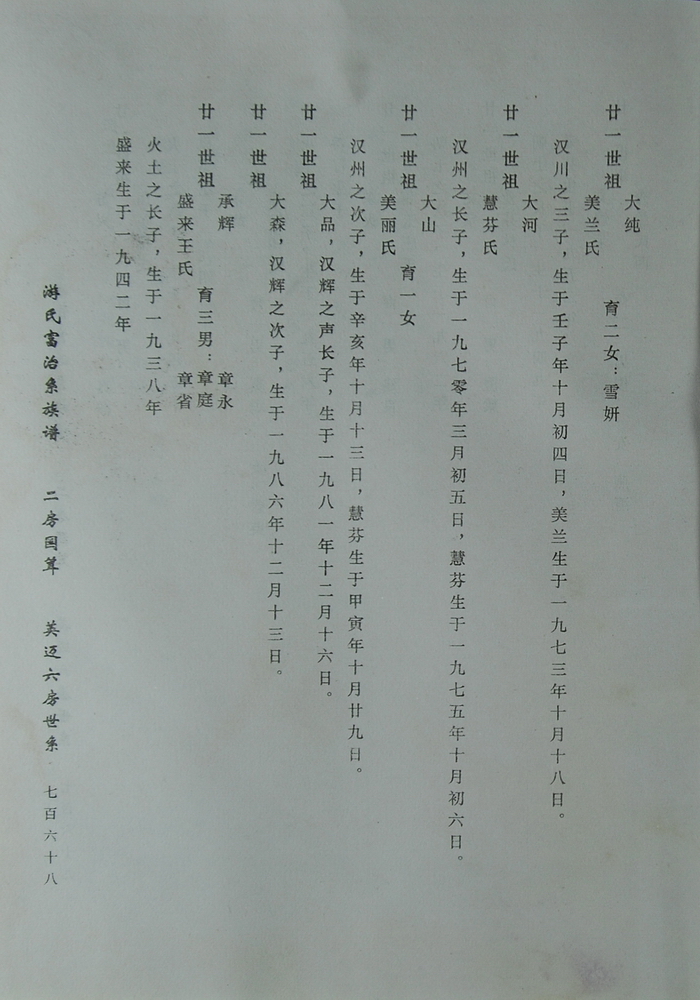 廿一世祖
大纯
美兰氏
育二女：雪妍
汉川之三子，生于壬子年十月初四日，美兰生于一九七三年十月十八日。
廿一世祖
大河
慧芬氏
汉州之长子，生于一九七零年三月初五日，慧芬生于一九七五年十月初六日。
廿一世祖
大山
美丽氏
育一女
汉州之次子，生于辛亥年十月十三日，慧芬生于甲寅年十月廿九日。
廿一世祖
大品，汉辉之声长子，生于一九八一年十二月十六日。
廿一世祖
大森，汉辉之次子，生于一九八六年十二月十三日。
廿一世祖
承辉
盛来王氏
育三男：
章永
章庭
章省
火土之长子，生于一九三八年
盛来生于一九四二年
游氏富治系族谱 二房国 英迈六房世系 七百六十八